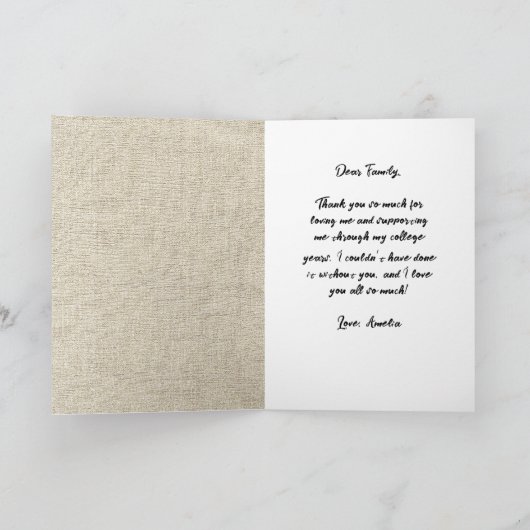 Dear Family,
Thank you so much for
loving me and supporting
me through my college
years. I couldn't have done
it without you, and I love
you all so much!
Love, Amelia